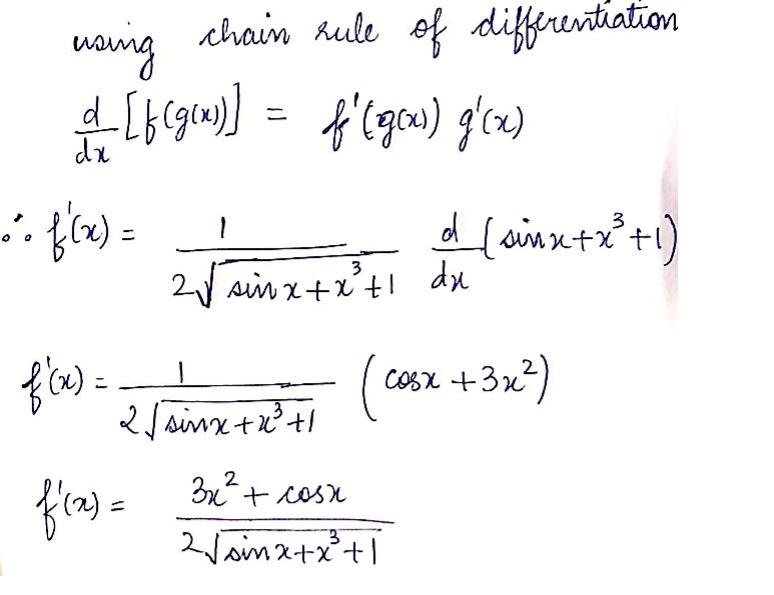 using chain rule of differentiation
d/dx [f(g(x))] = f'(g(x)) g'(x)
∴ f'(x) = 1/(2√(sinx+x³+1)) d/dx (sinx+x³+1)
f'(x) = 1/(2√(sinx+x³+1)) (cosx +3x²)
f'(x) = (3x²+cosx)/(2√(sinx+x³+1))